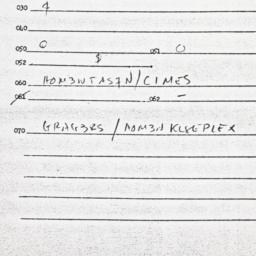 030 4
040
050 0 051 0
052 $
060 MOMENTASIN/CIMES
061 062 -
070 GRAGERS / MOMEN KLEEPLEX